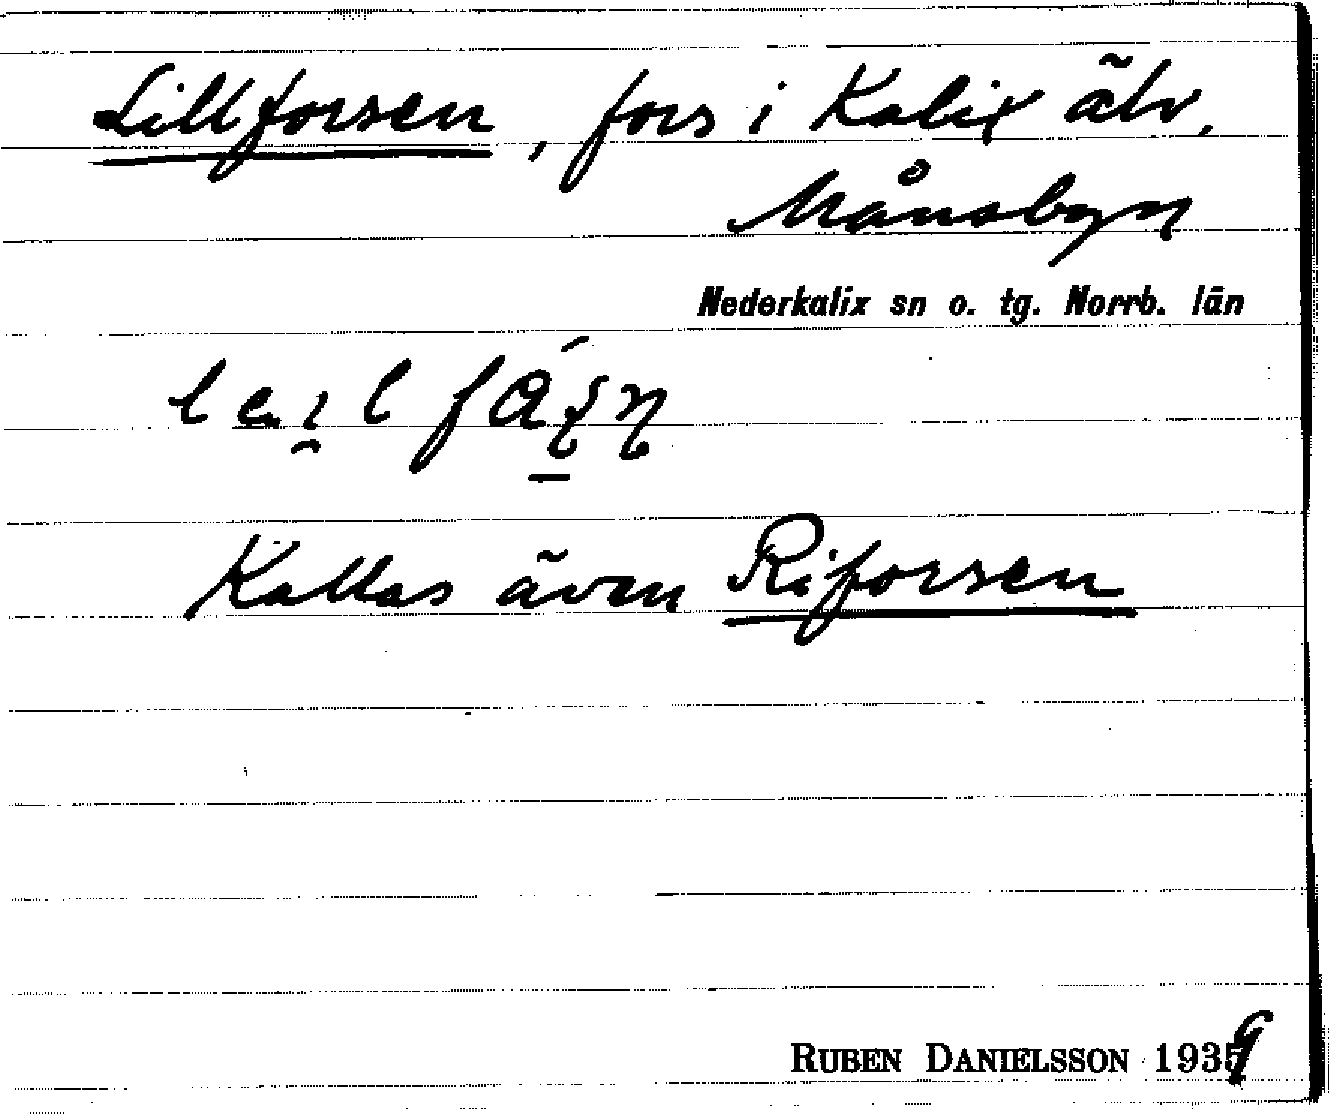 Lillforsen, fors i Kalix älv,
Månsbyn
Nederkalix sn o. tg. Norrb. län
Kallas även Riforsen
RUBEN DANIELSSON 1939